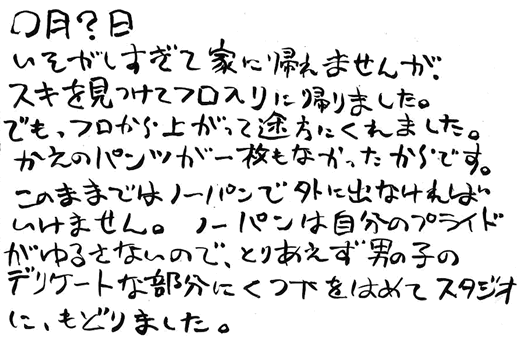 〇月?日
いそがしすぎて家に帰れませんが、
スキを見つけてフロ入りに帰りました。
でも、フロから上がって途方にくれました。
かえのパンツが一枚もなかったからです。
このままではノーパンで外に出なければ
いけません。ノーパンは自分のプライド
がゆるさないので、とりあえず男の子の
デリケートな部分にくつ下をはめてスタジオ
に、もどりました。